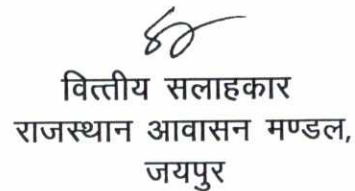 वित्तीय सलाहकार
राजस्थान आवासन मण्डल,
जयपुर